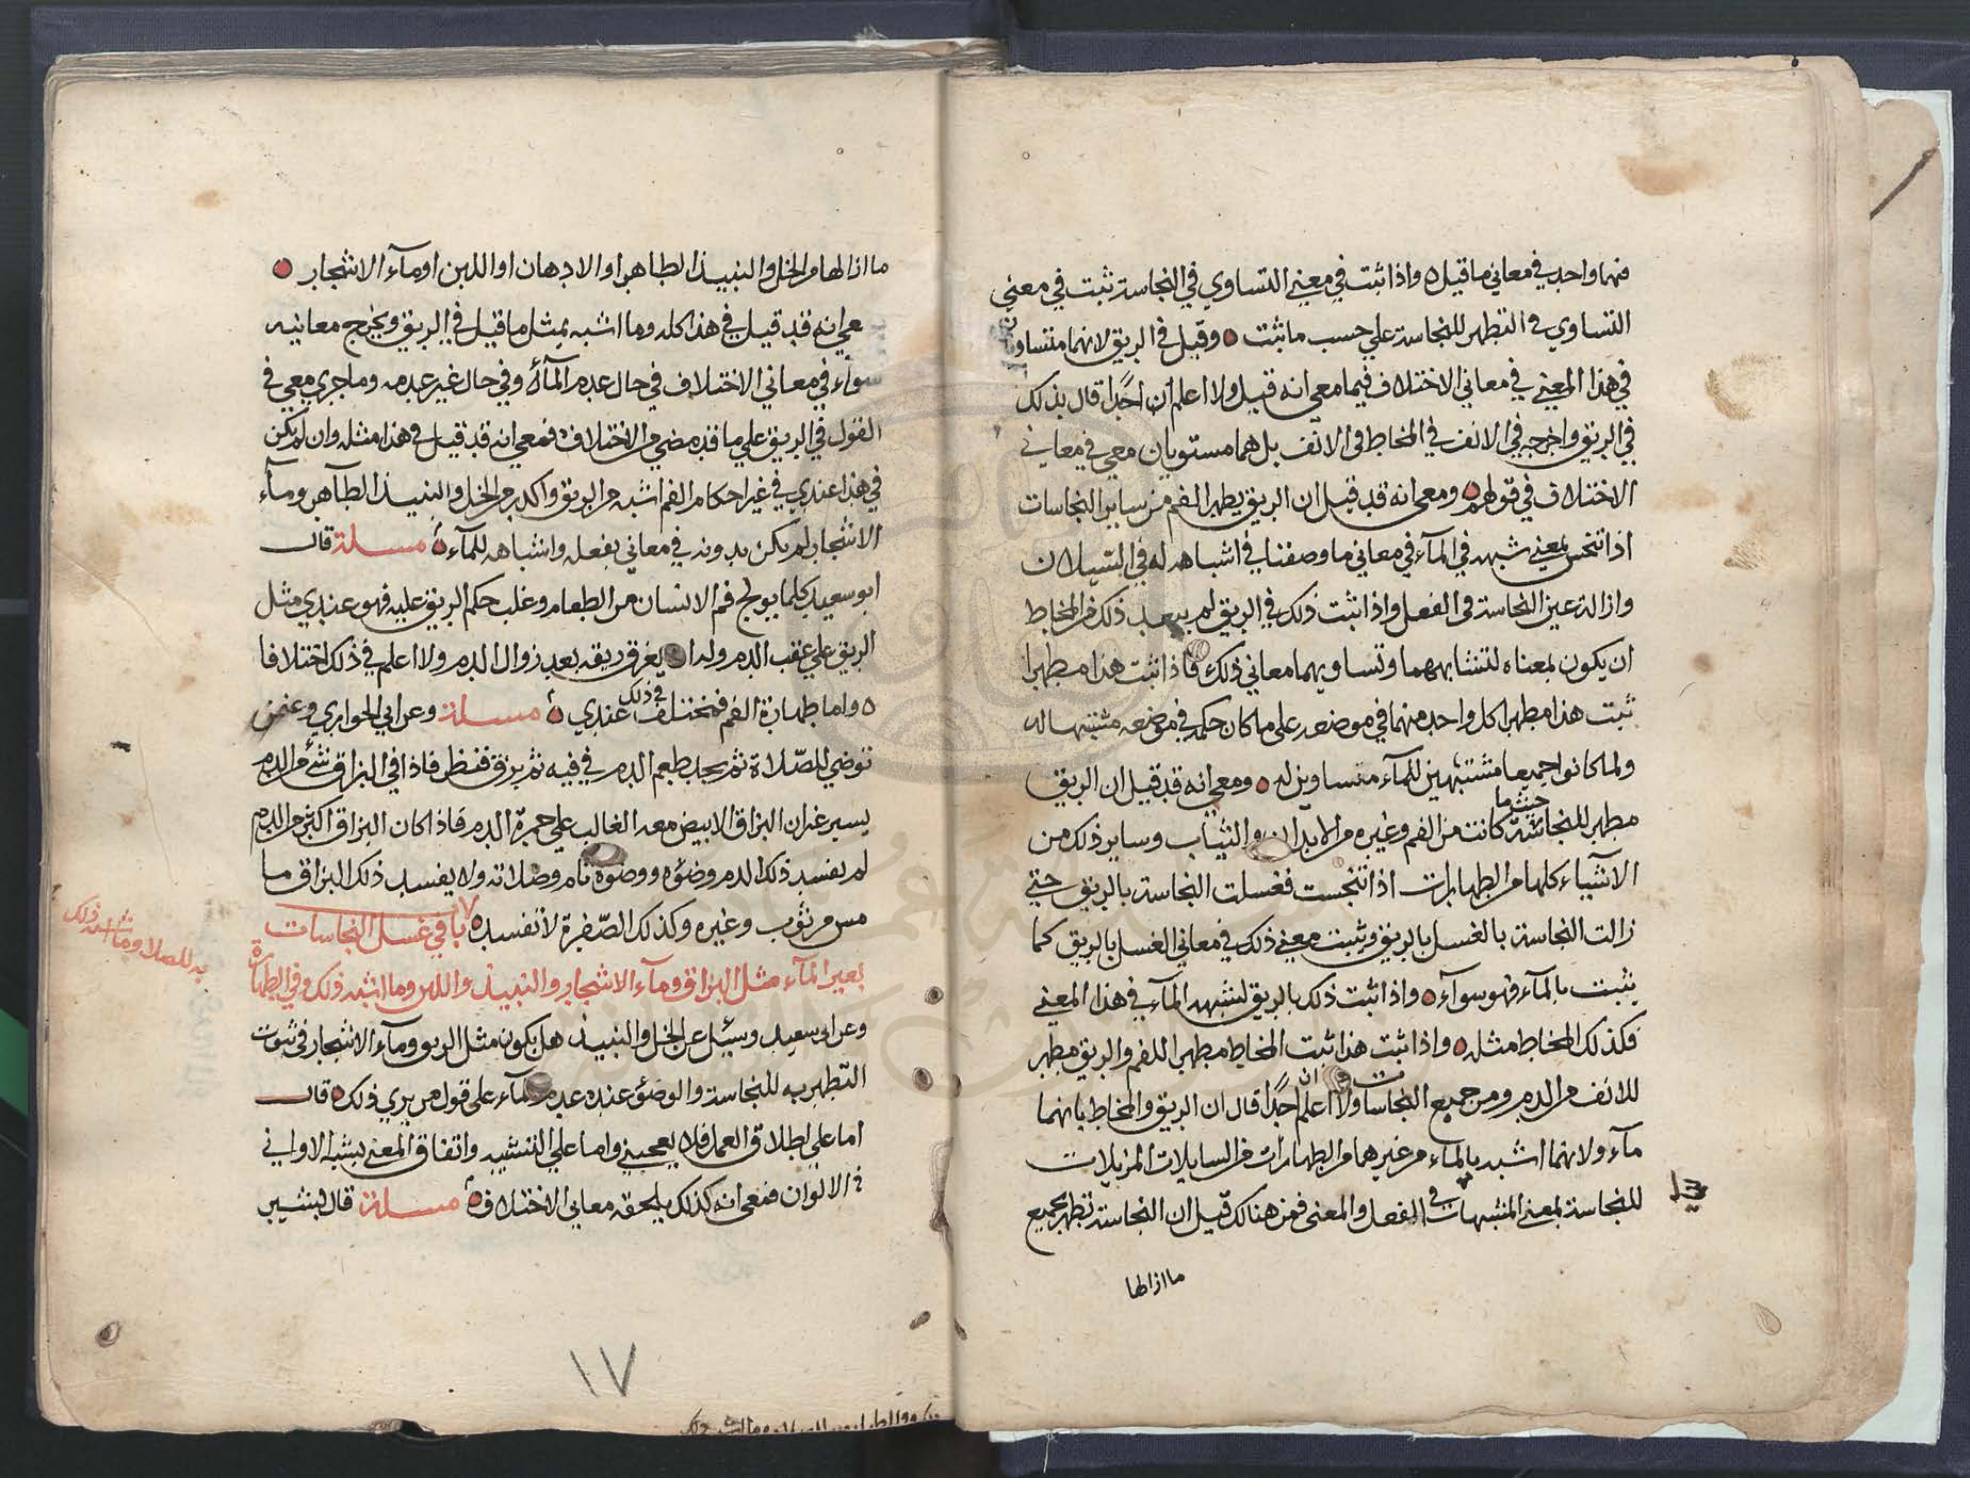 منهما واحد في معاني ما قيل ه واذا ثبت في معنى التساوي في النجاسة ثبت في معنى
التساوي في التطهر للنجاسة على حسب ما ثبت ه وقيل في الريق لانهما متساويان
في هذا المعنى في معاني الاختلاف فيما معي انه قيل ولا اعلم ان احدا قال بذلك
في الريق واخرجه في الانف في المخاط في الانف بل هما مستويان معي في معاني
الاختلاف في قولهم ه ومعي انه قد قيل ان الريق يطهر الفم من ساير النجاسات
اذا تنجس بمعنى شبهه في المآء في معاني ما وصفنا في اشباهه له في السيلان
وازالة عين النجاسة في الفعل واذا ثبت ذلك في الريق لم يبعد ذلك من المخاط
ان يكون بمعناه لتشابههما وتساويهما معاني ذلك فاذا ثبت هذا مطهرا
ثبت هذا مطهرا كل واحد منهما في موضعه على ما كان حكمه في موضعه مشتبها له
ولما كانوا جميعا مشتبهين للمآء متساوين له ه ومعي انه قد قيل ان الريق
مطهر للنجاسة حيث ما كانت من الفم وغيره من الابدان والثياب وساير ذلك من
الاشياء كلها من الطهارات اذا تنجست فغسلت النجاسة بالريق حتى
زالت النجاسة بالغسل بالريق وثبت معنى ذلك في معاني الغسل بالريق كما
يثبت بالمآء فهو سوآء ه واذا ثبت ذلك بالريق لشبهه المآء في هذا المعنى
فكذلك المخاط مثله ه واذا ثبت هذا ثبت المخاط مطهرا للفم والريق مطهر
للانف من الدم ومن جميع النجاسات ولا اعلم ان احدا قال ان الريق والمخاط بانهما
مآء ولانهما اشبه بالمآء من غيرهما من الطهارات من السايلات المزيلات
للنجاسة بمعنى المشبهات في الفعل والمعنى فمن هنالك قيل ان النجاسة تطهر بجميع
ما ازالها
ما ازالها من الخل والنبيذ الطاهر او الادهان او اللبن او مآء الاشجار ه
معي انه قد قيل في هذا كله وما اشبه بمثل ما قيل في الريق ويخرج معانيه
سوآء في معاني الاختلاف في حال عدم المآء وفي حال غير عدمه وما جرى معي في
القول في الريق على ما قد مضى من الاختلاف ه فمعي انه قد قيل في هذا مثله وان لم يكن
في هذا عندي في غير احكام الفم اشبه من الريق واكد من الخل والنبيذ الطاهر ومآء
الاشجار لم يكن بدونه في معاني بفعله واشباهه للمآء ه مسلة قال
ابو سعيد كلما يولج فم الانسان من الطعام وغلب حكم الريق عليه فهو عندي مثل
الريق على عقب الدم وله ان يغرق ريقه بعد زوال الدم ولا اعلم في ذلك اختلافا
ه واما طهارة الفم فمختلف في ذلك عندي ه مسلة وعن ابي الحواري وعن من
توضي للصلاة ثم يجد طعم الدم في فيه ثم بزق فنظر فاذا في البزاق شئ من الدم
يسير غير ان البزاق الابيض معه الغالب على حمرة الدم فاذا كان البزاق اكثر من الدم
لم يفسد ذلك الدم وضوه ووضوه تام وصلاته ولا يفسد ذلك البزاق ما
مس من ثوب وغيره وكذلك الصفرة لا تفسد ه باب في غسل النجاسات
بغير المآء مثل البزاق ومآء الاشجار والنبيذ واللبن وما اشبه ذلك وفي الطهارة
به للصلاة وما اشبه ذلك
وعن ابي سعيد وسئل عن الخل والنبيذ هل يكون مثل الريق ومآء الاشجار في ثبوت
التطهر به للنجاسة والوضوء عند عدم المآء على قول من يرى ذلك ه قال
اما على اطلاق العمل فلا يعجبني واما على التشبيه واتفاق المعنى بشبه الاواني
في الالوان فمعي انه كذلك يلحقه معاني الاختلاف ه مسلة قال بشير
١٧